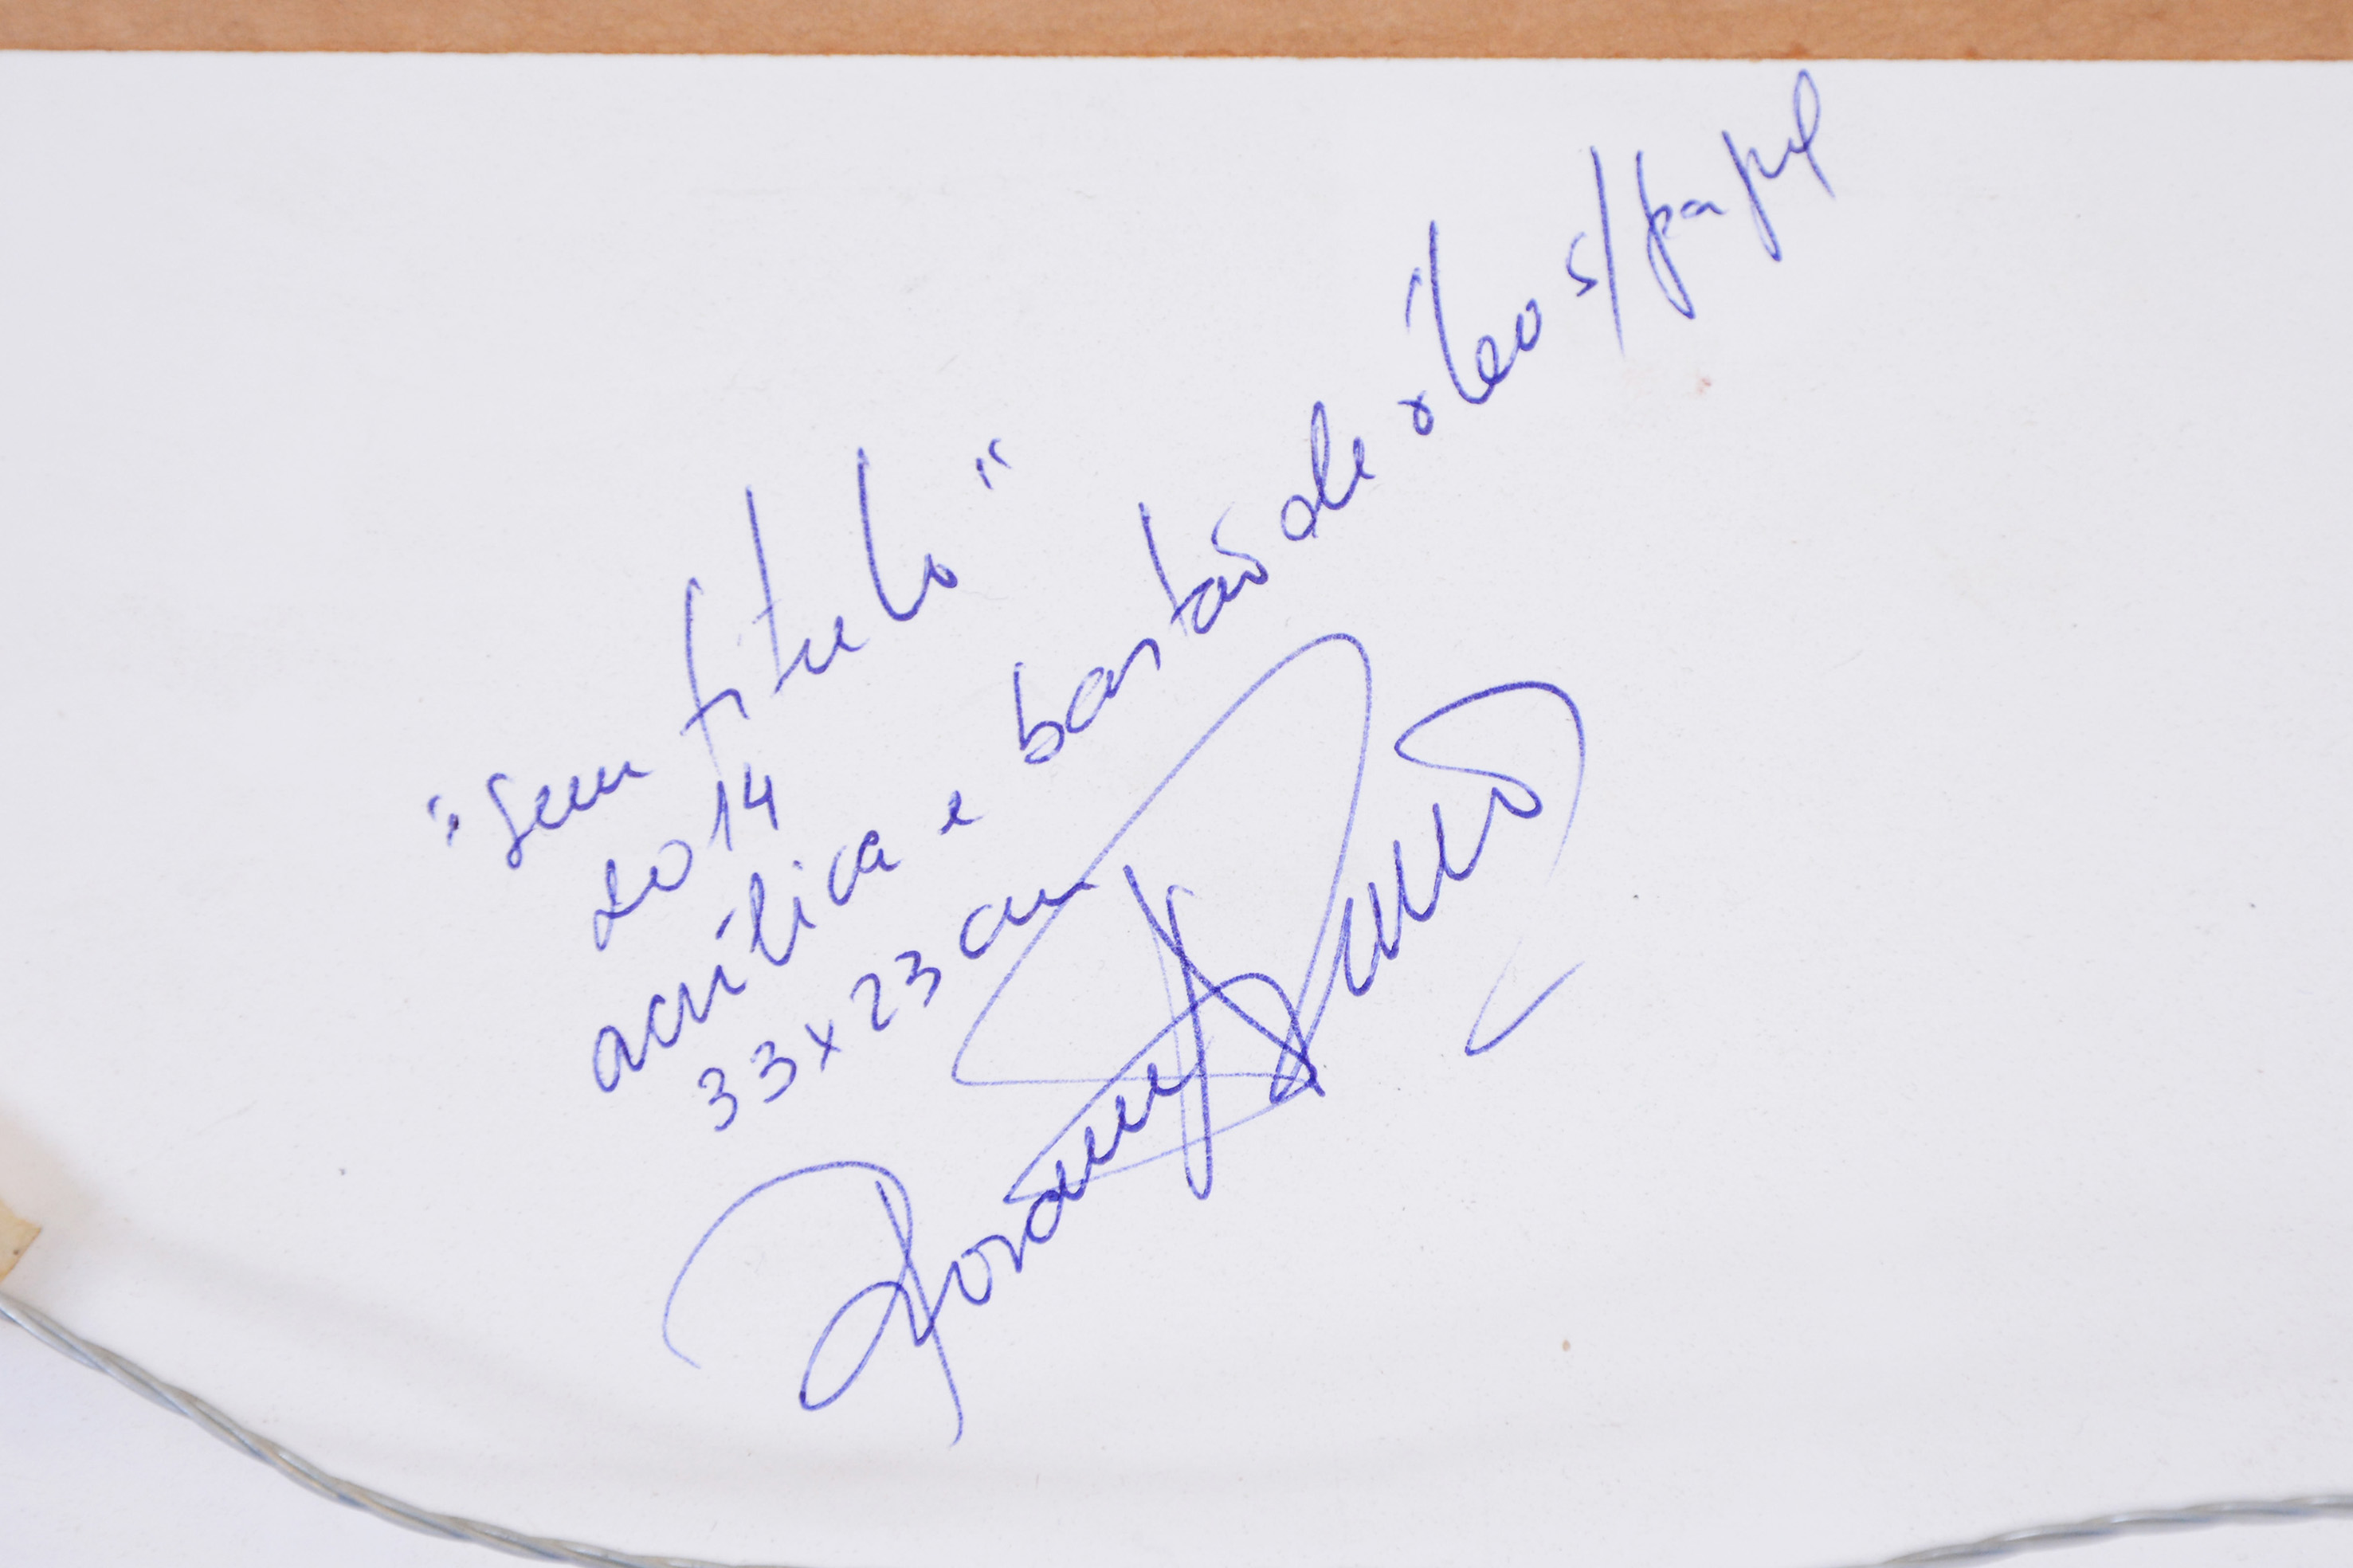 "Sem título"
2014
acrílica e bastão de óleo s/papel
33x23 cm